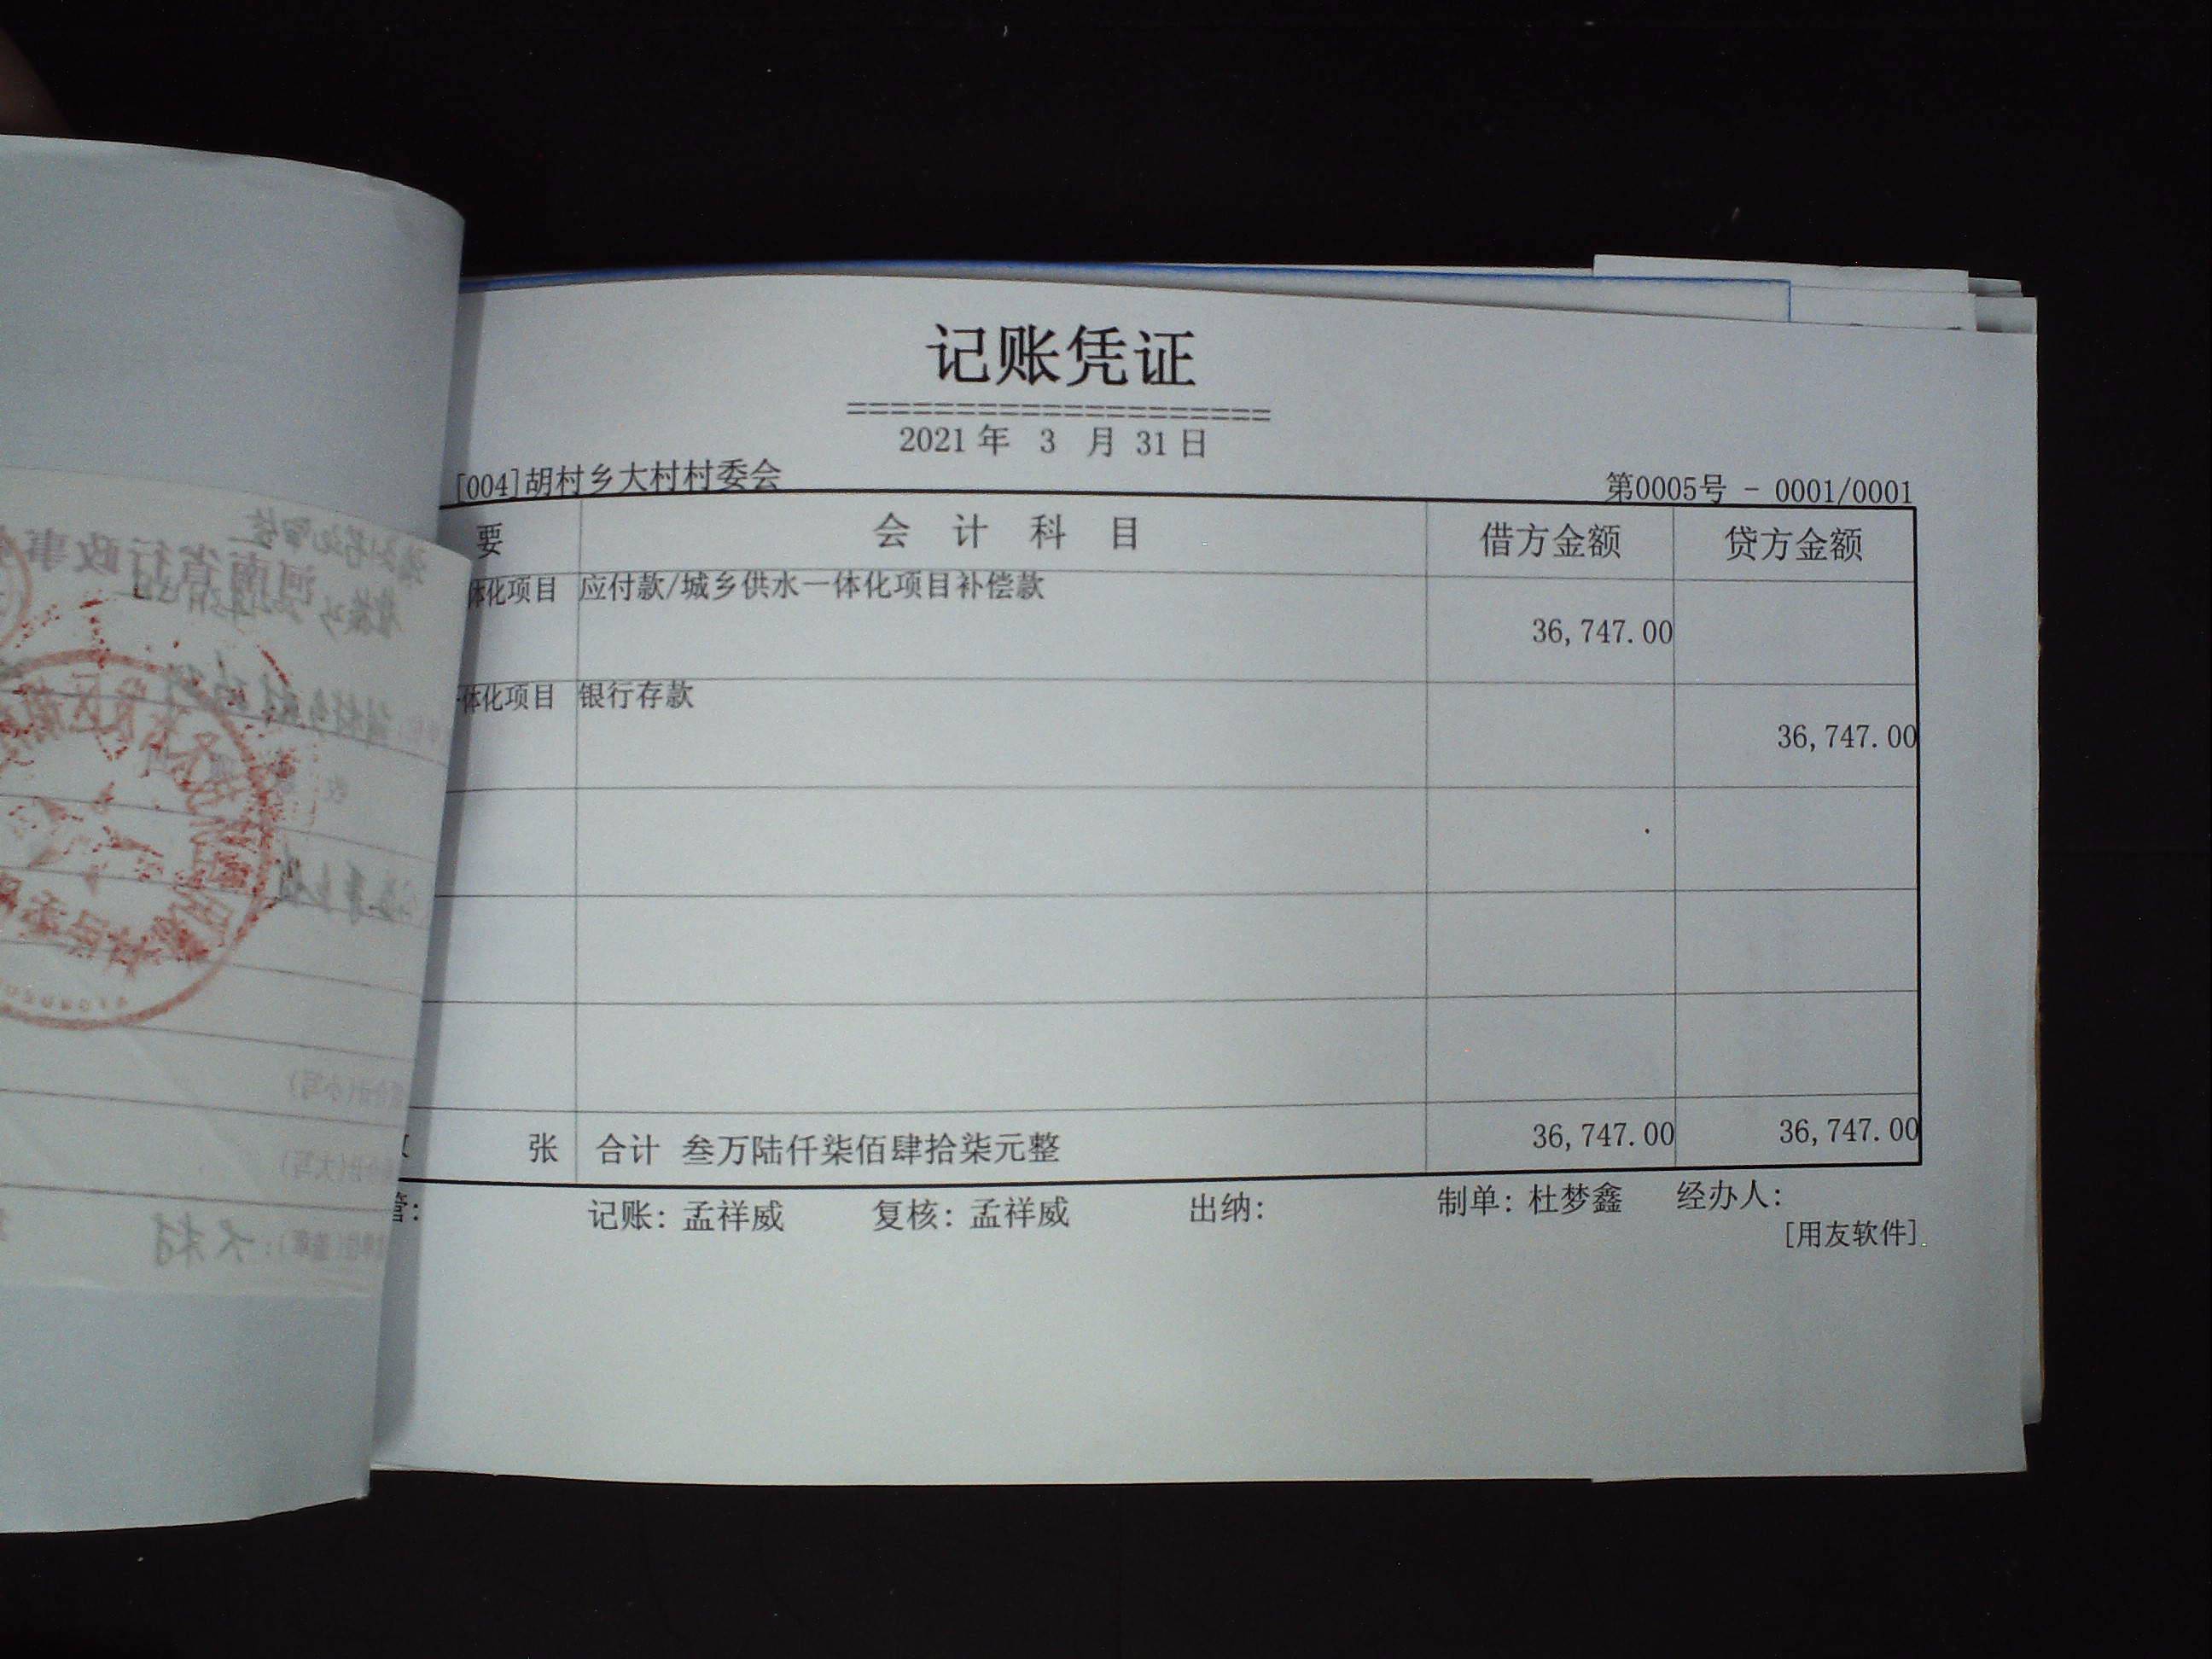 记账凭证
====================
2021 年 3 月 31 日
[004]胡村乡大村村委会 第0005号 - 0001/0001
要 会 计 科 目 借方金额 贷方金额
体化项目 应付款/城乡供水一体化项目补偿款
36,747.00
体化项目 银行存款
36,747.00
张 合计 叁万陆仟柒佰肆拾柒元整 36,747.00 36,747.00
管: 记账: 孟祥威 复核: 孟祥威 出纳: 制单: 杜梦鑫 经办人:
[用友软件]
河南省行政事